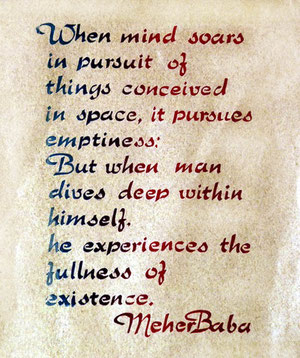 When mind soars
in pursuit of
things conceived
in space, it pursues
emptiness:
But when man
dives deep within
himself.
he experiences the
fullness of
existence.
MeherBaba